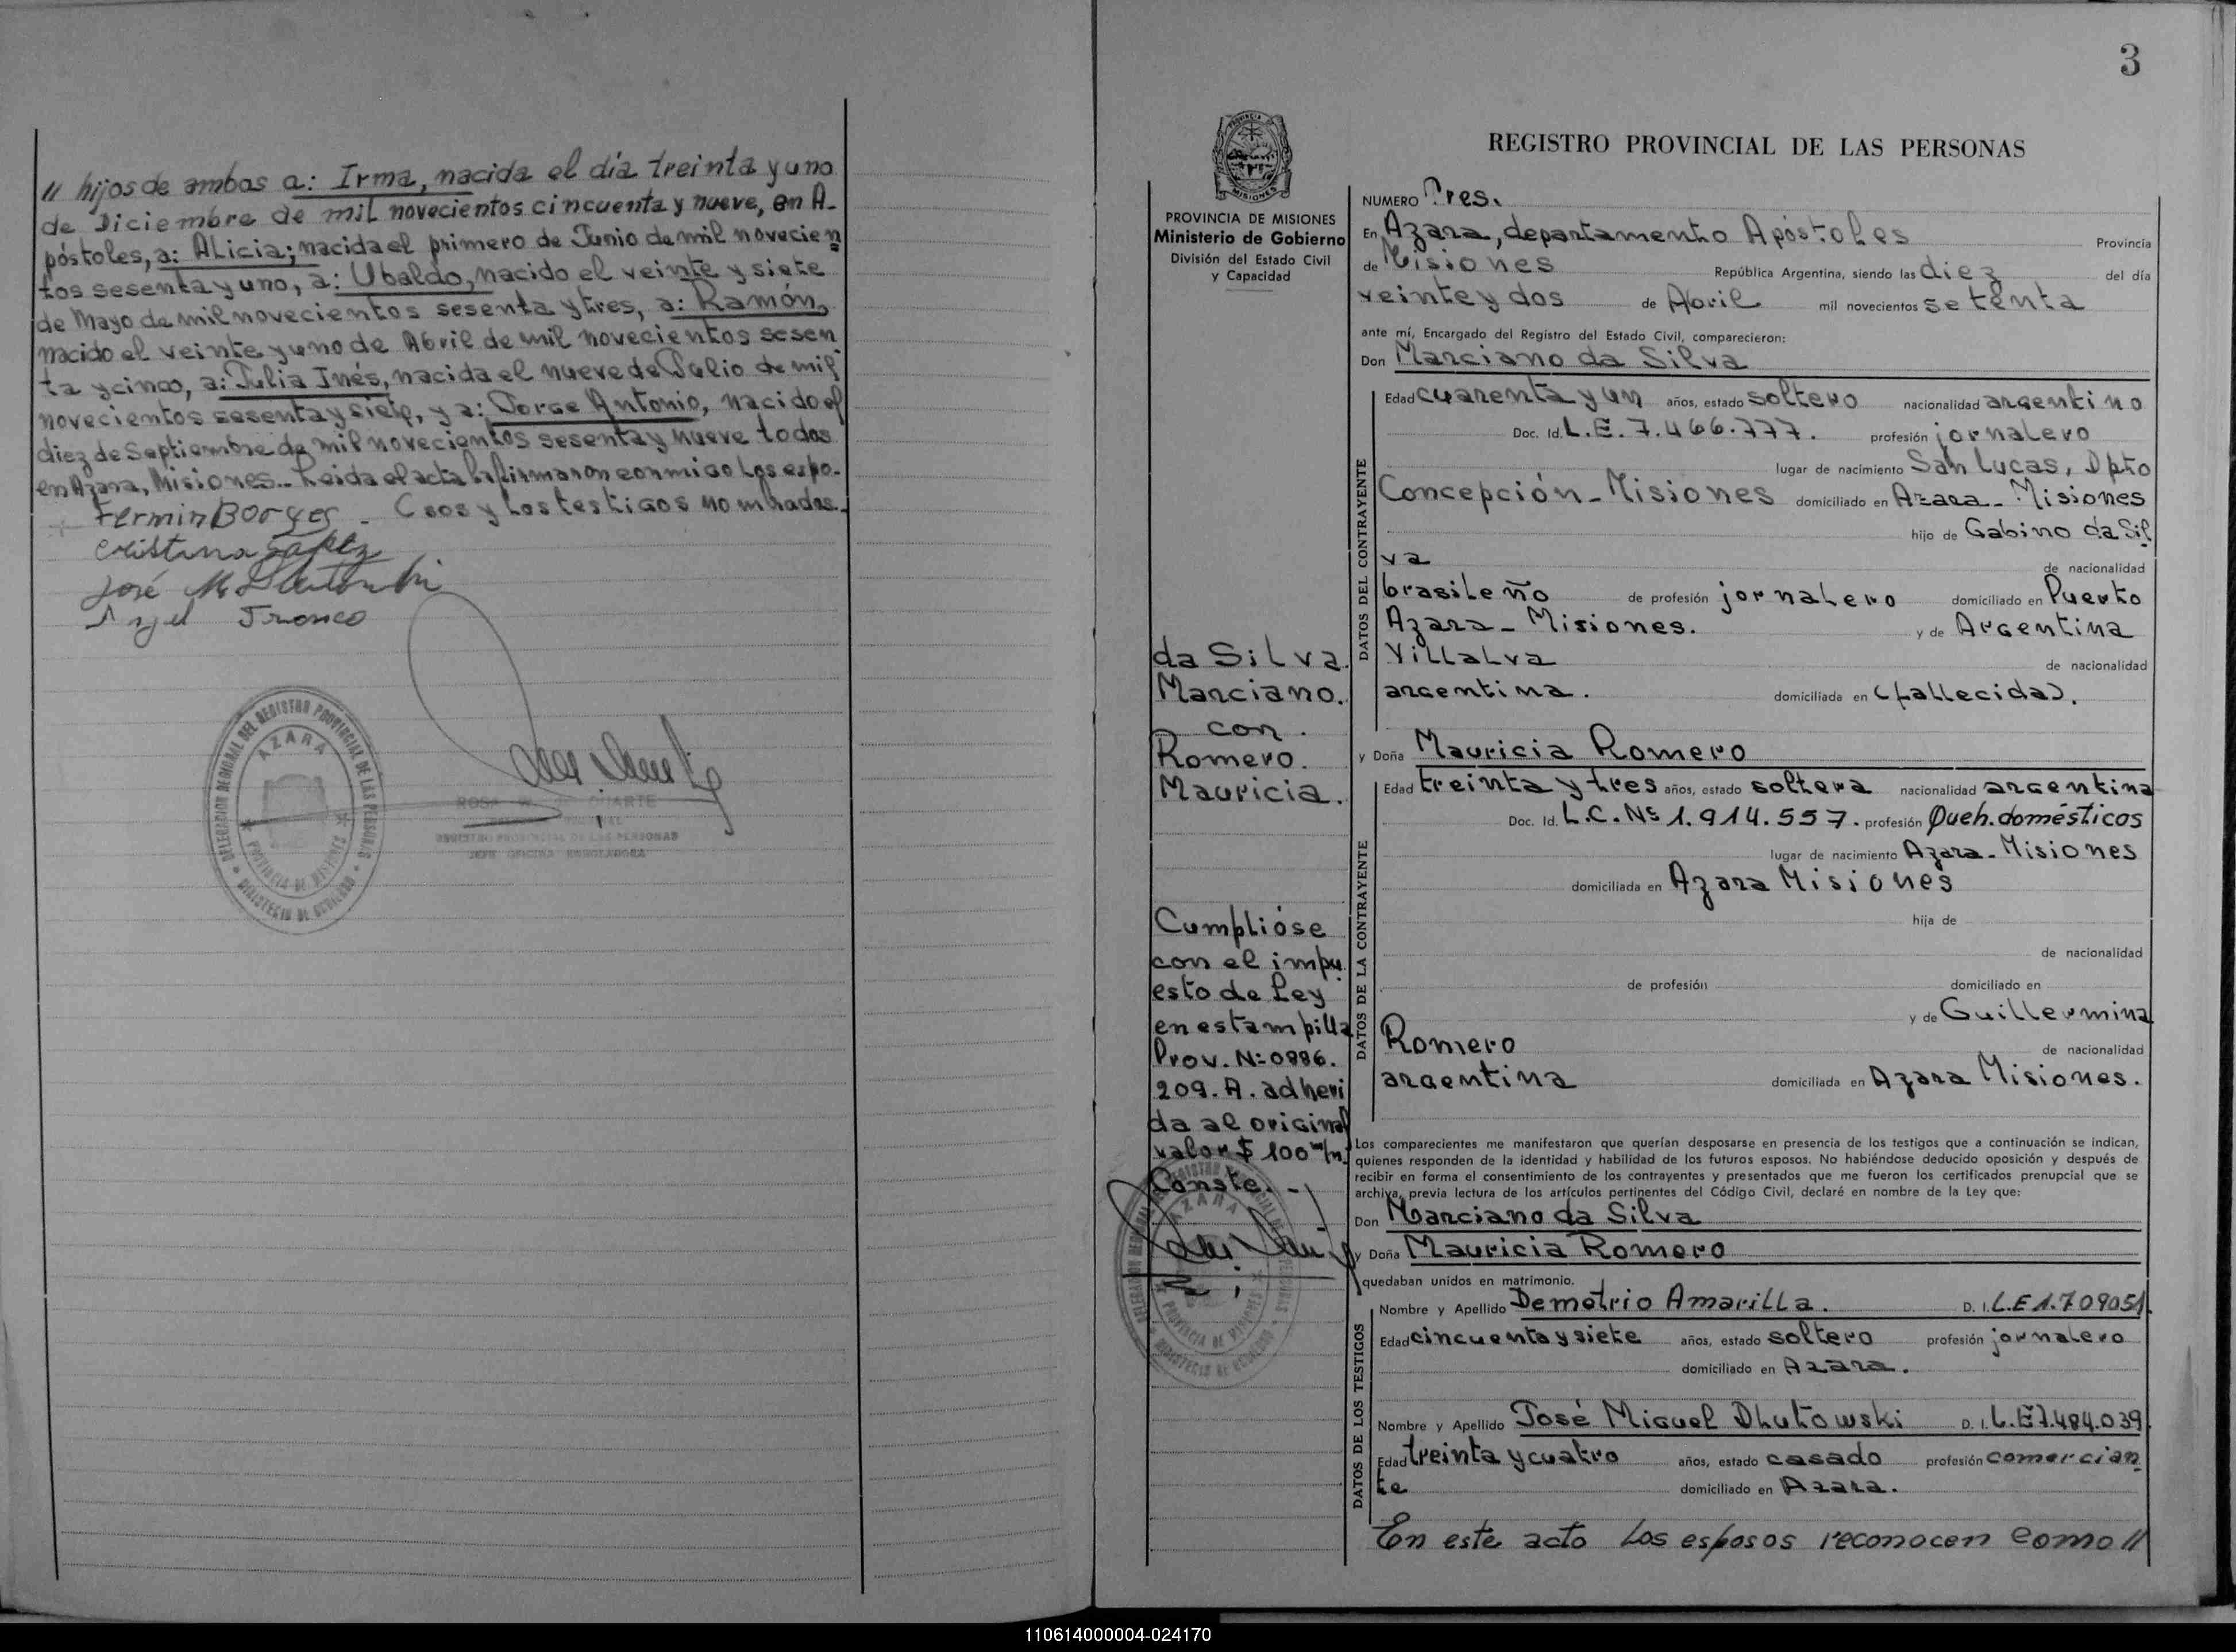 // hijos de ambos a: Irma, nacida el día treinta y uno
de Diciembre de mil novecientos cincuenta y nueve, en A-
póstoles, a: Alicia; nacida el primero de Junio de mil novecien
tos sesenta y uno, a: Ubaldo, nacido el veinte y siete
de Mayo de mil novecientos sesenta y tres, a: Ramón,
nacido el veinte y uno de Abril de mil novecientos sesen
ta y cinco, a: Julia Inés, nacida el nueve de Julio de mil
novecientos sesenta y siete, y a: Jorge Antonio, nacido el
diez de Septiembre de mil novecientos sesenta y nueve todos
en Azara, Misiones.- Leida el acta la firmaron conmigo los espo-
sos y los testigos nombrados.-
Fermin Borges
Cristina
José M.
Angel Franco
DELEGACION REGIONAL DEL REGISTRO PROVINCIAL DE LAS PERSONAS
AZARA
PROVINCIA DE MISIONES
MINISTERIO DE GOBIERNO
ROSA DUARTE
REGISTRO PROVINCIAL DE LAS PERSONAS
JEFE OFICINA ENROLADORA
3
PROVINCIA DE MISIONES
Ministerio de Gobierno
División del Estado Civil
y Capacidad
da Silva
Marciano.
con
Romero.
Mauricia.
Cumplióse
con el impu
esto de Ley
en estampilla
Prov. Nº 0886.
209.A. adheri
da al original
valor $ 100 m/n
Conste.-
AZARA
PROVINCIA DE MISIONES
MINISTERIO DE GOBIERNO
REGISTRO PROVINCIAL DE LAS PERSONAS
NUMERO Tres.
En Azara, departamento Apóstoles Provincia
de Misiones República Argentina, siendo las diez del día
veinte y dos de Abril mil novecientos setenta
ante mí, Encargado del Registro del Estado Civil, comparecieron:
Don Marciano da Silva
DATOS DEL CONTRAYENTE
Edad cuarenta y un años, estado soltero nacionalidad argentino
Doc. Id. L.E. 7.466.777. profesión jornalero
lugar de nacimiento San Lucas, Dpto
Concepción - Misiones domiciliado en Azara - Misiones
hijo de Gabino da Sil
va de nacionalidad
brasileño de profesión jornalero domiciliado en Puerto
Azara - Misiones. y de Argentina
Villalva de nacionalidad
argentina. domiciliada en (fallecida).
y Doña Mauricia Romero
DATOS DE LA CONTRAYENTE
Edad treinta y tres años, estado soltera nacionalidad argentina
Doc. Id. L.C. Nº 1.914.557. profesión Queh. domésticos
lugar de nacimiento Azara - Misiones
domiciliada en Azara Misiones
hija de
de nacionalidad
de profesión domiciliado en
y de Guillermina
Romero de nacionalidad
argentina domiciliada en Azara Misiones.
Los comparecientes me manifestaron que querían desposarse en presencia de los testigos que a continuación se indican,
quienes responden de la identidad y habilidad de los futuros esposos. No habiéndose deducido oposición y después de
recibir en forma el consentimiento de los contrayentes y presentados que me fueron los certificados prenupcial que se
archiva, previa lectura de los artículos pertinentes del Código Civil, declaré en nombre de la Ley que:
Don Marciano da Silva
y Doña Mauricia Romero
quedaban unidos en matrimonio.
DATOS DE LOS TESTIGOS
Nombre y Apellido Demetrio Amarilla. D. I. L.E 1.709051.
Edad cincuenta y siete años, estado soltero profesión jornalero
domiciliado en Azara.
Nombre y Apellido José Miguel Dlutowski D. I. L.E 7.484.039
Edad treinta y cuatro años, estado casado profesión comercian
te domiciliado en Azara.
En este acto los esposos reconocen como //
110614000004-024170